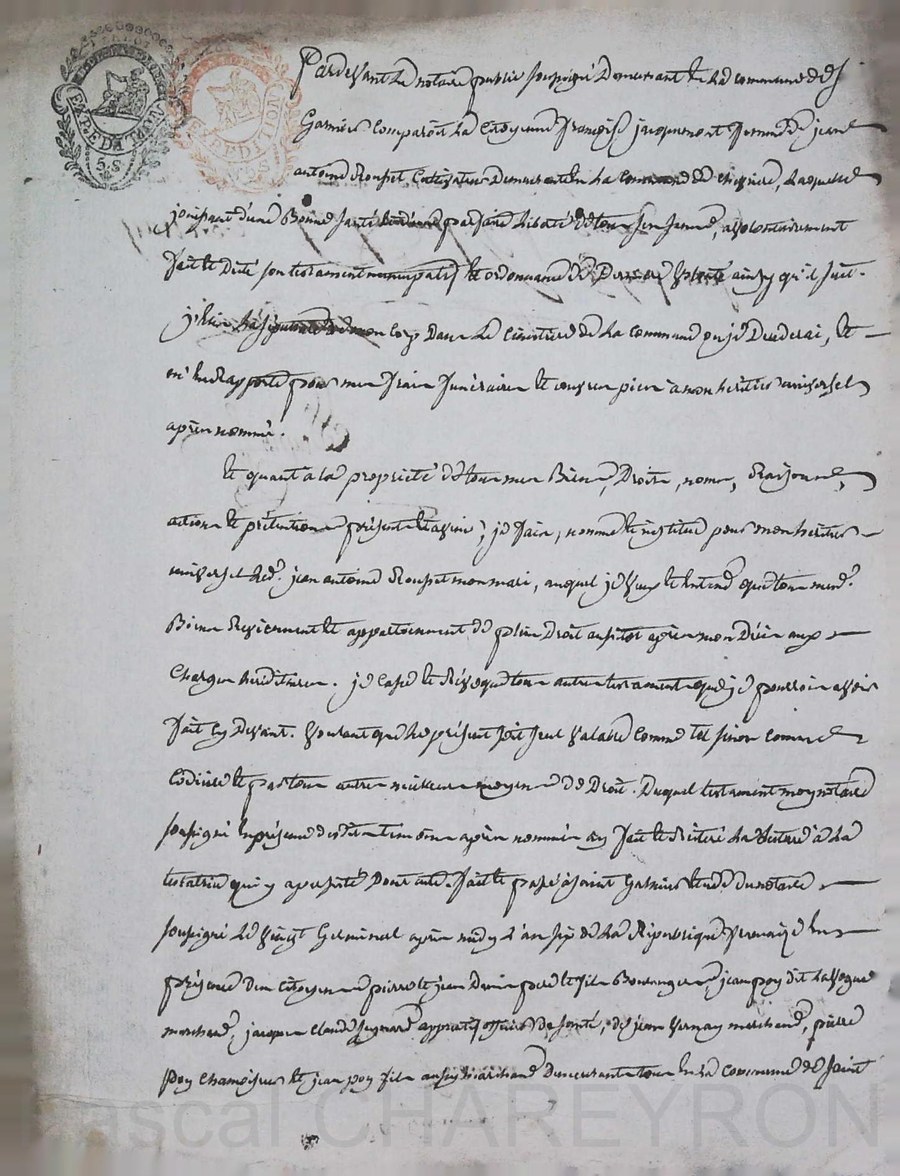 EXPED. DA TIMB.
5.S
EXPEDITION
Pardevant Le notaire public soussigné Demeurant En La commune de St
Galmier Comparoit La Citoyenne françoise jacquemont femme de jean
antoine Rousset Cultivateur Demeurant En La Commune de chevrieres, Laquelle
jouissant d'une Bonne santé parfaite Liberté de tous ses sens, a volontairement
fait Et Dicté son testament nuncupatif Et ordonnance de Derniere volonté ainsy qu'il suit.
j'Elis La sepulture de mon Corps Dans Le Cimetiere de La Commune ou je Decederai, Et
m'En Rapporte pour mes frais funeraires Et œuvres pies a mon heritier universel
après nommé.
Et quant a la propriété de tous mes Biens, Droits, noms, Raisons,
actions Et prétentions présents Et avenir, je fais, nomme Et institue pour mon heritier
universel Led. jean antoine Rousset mon mari, auquel je veux Et Entend que tous mesd.
Biens Reviennent Et appartiennent de plein Droit aussitot après mon Décès aux
Charges héréditaires. je Casse Et Révoque tous autres testaments que je pourrois avoir
fait Cy Devant. Voulant que Le présent soit seul Valable Comme tel sinon Comme
Codicile Et par tous autres meilleurs moyens de Droit. Duquel testament moy notaire
soussigné En présence des témoins après nommés ay fait Et Réitéré La Lecture a La
testatrice qui y a persisté Dont acte. fait Et passé a saint Galmier Etude du notaire
soussigné Le Vingt Germinal après midy L'an six de La République françoise En
présence des Citoyens pierre Et jean Denis pere Et fils Boulangers, jean poy dit Lavogue
marchand, jacques Claude apprentif officier De santé, jean Vernay marchand, pierre
poy Chamoiseur Et jean poy fils aussy Marchand Demeurants tous En La Commune de saint
Pascal CHAREYRON